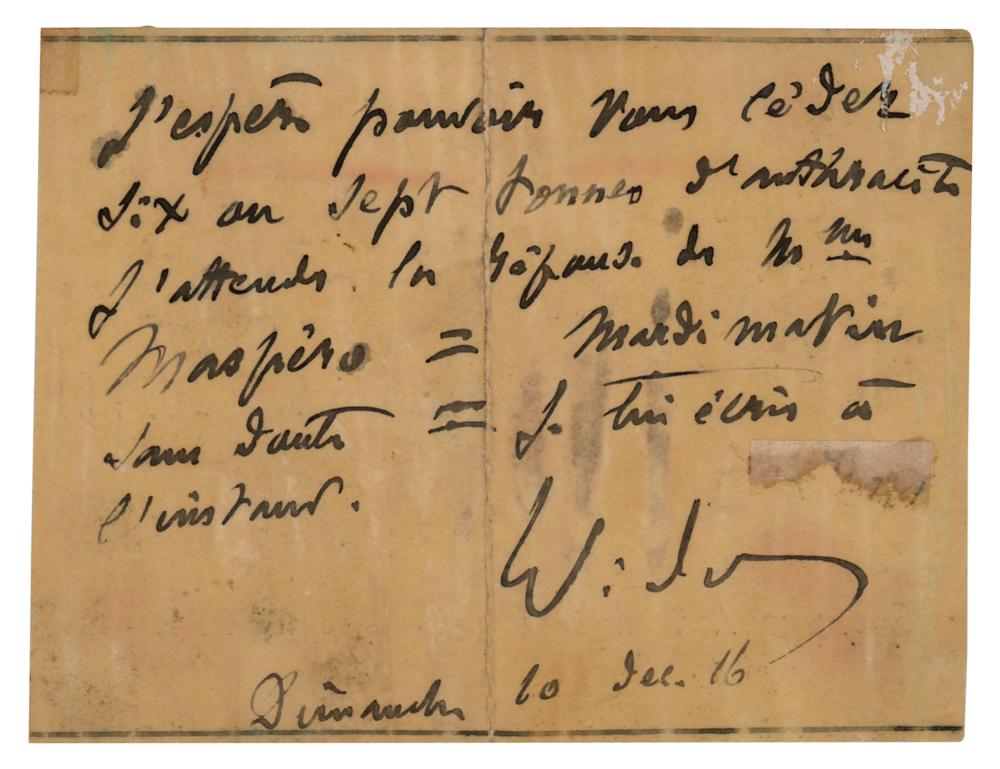 J'espère pouvoir vous céder
six ou sept tonnes d'anthracite
J'attends la réponse de Mme
Maspéro = Mardi matin
sans doute = Je lui écris à
l'instant.
Widor
Dimanche 10 Dec. 16